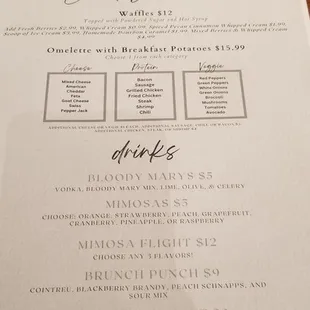 Waffles $12
Topped with Powdered Sugar and Hot Syrup
Add Fresh Berries $2.99, Whipped Cream $0.99, Spiced Pecan Cinnamon Whipped Cream $1.99,
Scoop of Ice Cream $3.99, Homemade Bourbon Caramel $1.99, Mixed Berries & Whipped Cream
$4.99
Omelette with Breakfast Potatoes $15.99
Choose 1 from each category
Cheese
Protein
Veggie
Mixed Cheese
American
Cheddar
Feta
Goat Cheese
Swiss
Pepper Jack
Bacon
Sausage
Grilled Chicken
Fried Chicken
Steak
Shrimp
Chili
Red Peppers
Green Peppers
White Onions
Green Onions
Broccoli
Mushrooms
Tomatoes
Avocado
drinks
BLOODY MARYS $5
VODKA, BLOODY MARY MIX, LIME, OLIVE, & CELERY
MIMOSAS $5
CHOOSE: ORANGE, STRAWBERRY, PEACH, GRAPEFRUIT,
CRANBERRY, PINEAPPLE, OR RASPBERRY
MIMOSA FLIGHT $12
CHOOSE ANY 3 FLAVORS!
BRUNCH PUNCH $9
COINTREU, BLACKBERRY BRANDY, PEACH SCHNAPPS, AND
SOUR MIX